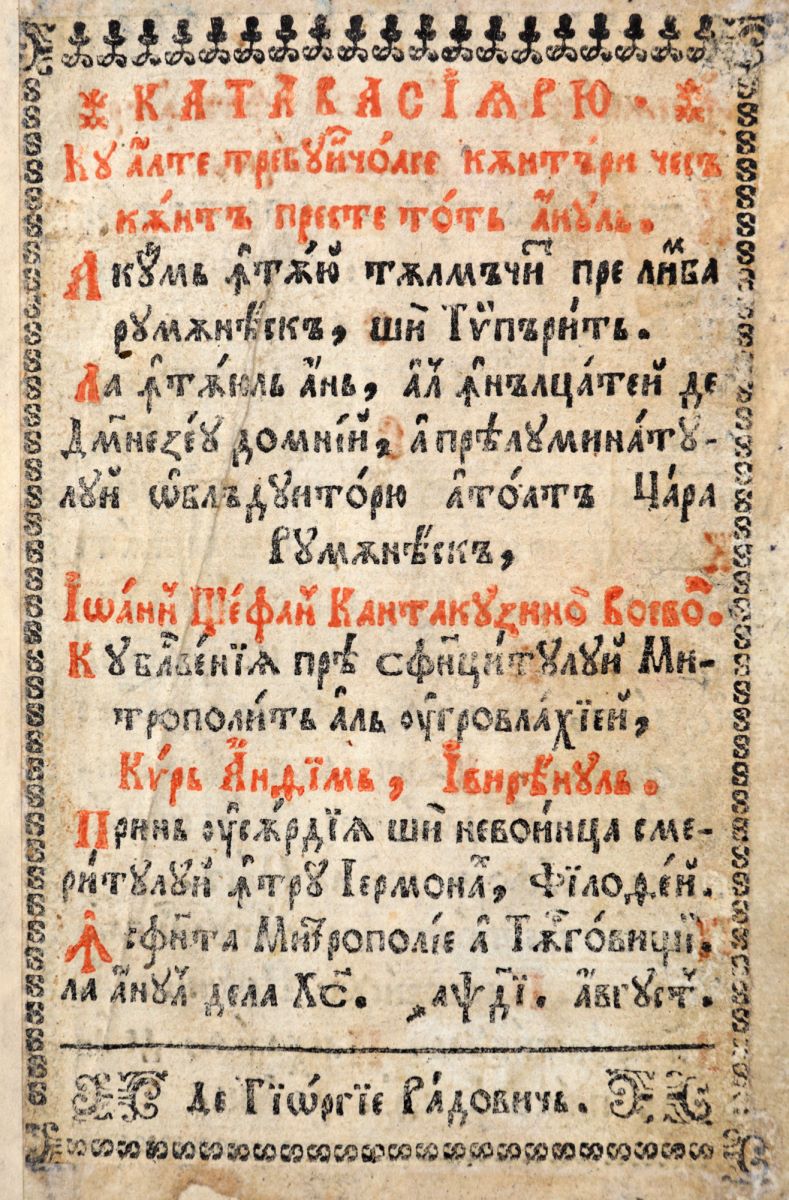 КАТАВАСІѦРЮ.
Куа҆лте требꙋи҆нчо́асе кѫнтъри чесъ
кѫ́нтъ престе то́ть а҆нꙋль.
Акꙋ́мь ꙟ҆тѫ́ю тълмъчи҆т пре ли́мба
рꙋмѫнѣ́скъ, ши҆ Ті́пъри́ть.
Ла ꙟ҆тѫ́юль а҆нь, а҆л ꙟ҆нълца́тей де
Дꙋмнезе́ꙋ домні́й, а҆ прѣлꙋмина́тꙋ-
лꙋй ѡ҆блъдꙋито́рю а҆то́атъ Ца́ра
Рꙋмѫнѣ́скъ,
І҆ѡа́нн Ще́фан Кантакꙋзино̀ Воево́д.
Кꙋбл҃ве́нїѧ прѣ́ сфинци́тꙋлꙋй Ми-
трополи́ть а҆ль ᲂу҆гровла́хїей,
Кѵ́рь А҆нѳїмь, І҆вирѣ́нꙋль.
Принь ᲂу҆сѫ́рдїѧ ши҆ невои́нца сме-
ри́тꙋлꙋй ꙟ҆трꙋ Іермона́х, Фїлоѳе́й.
Ꙟ҆ сфи҆нта Митрополі́е а҆ Тѫрго́вищїй.
ла а҆нꙋл дела Хс҃. ҂аѱд҃ї. а҆́вгꙋст.
де Гїѡ́ргїе Ра́довичь.